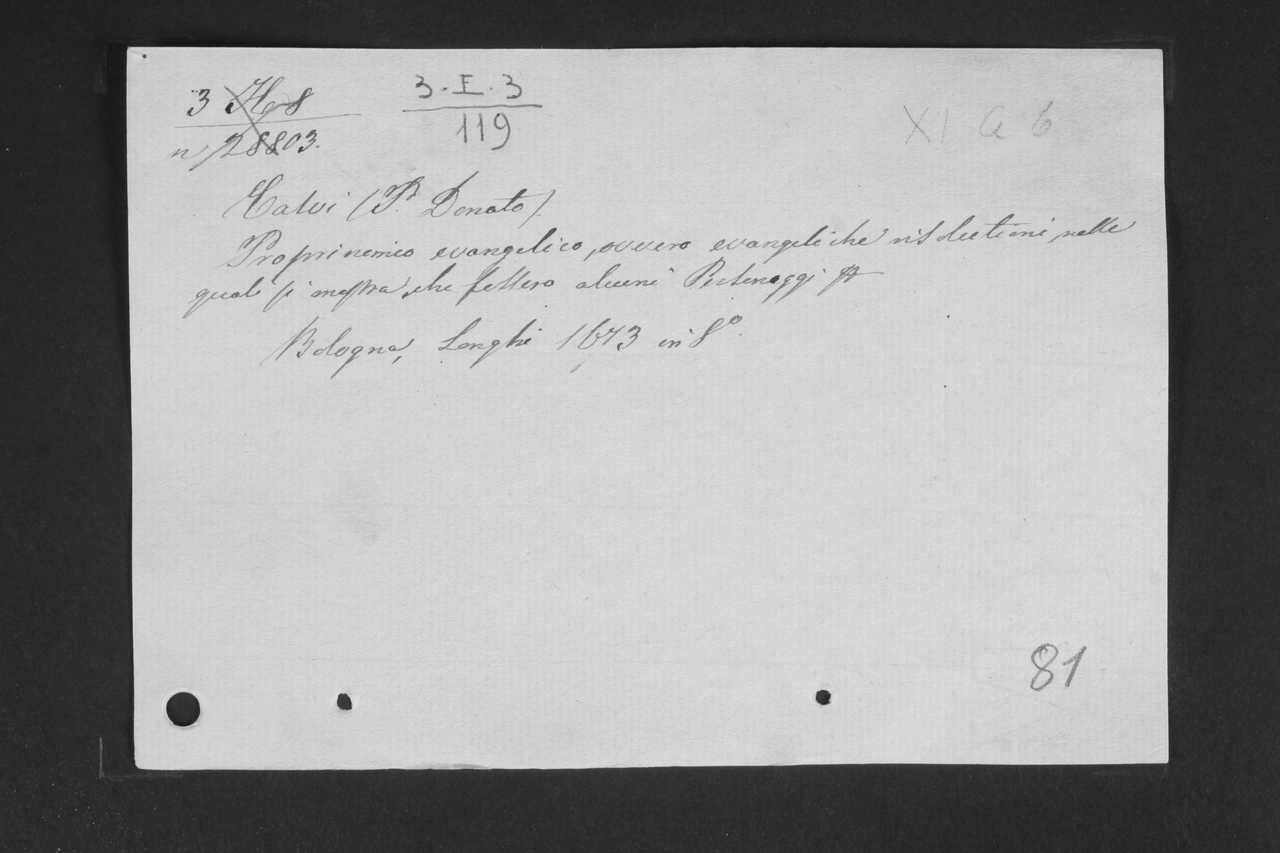 3 H 8
n 28803.
3. I. 3
119
XI a 6
Calvi (P. Donato).
Proprinomico evangelico, ovvero evangeliche risolutioni nelle
quali si mostra, che fossero alcuni Personaggi
Bologna, Longhi 1673 in 8°.
81